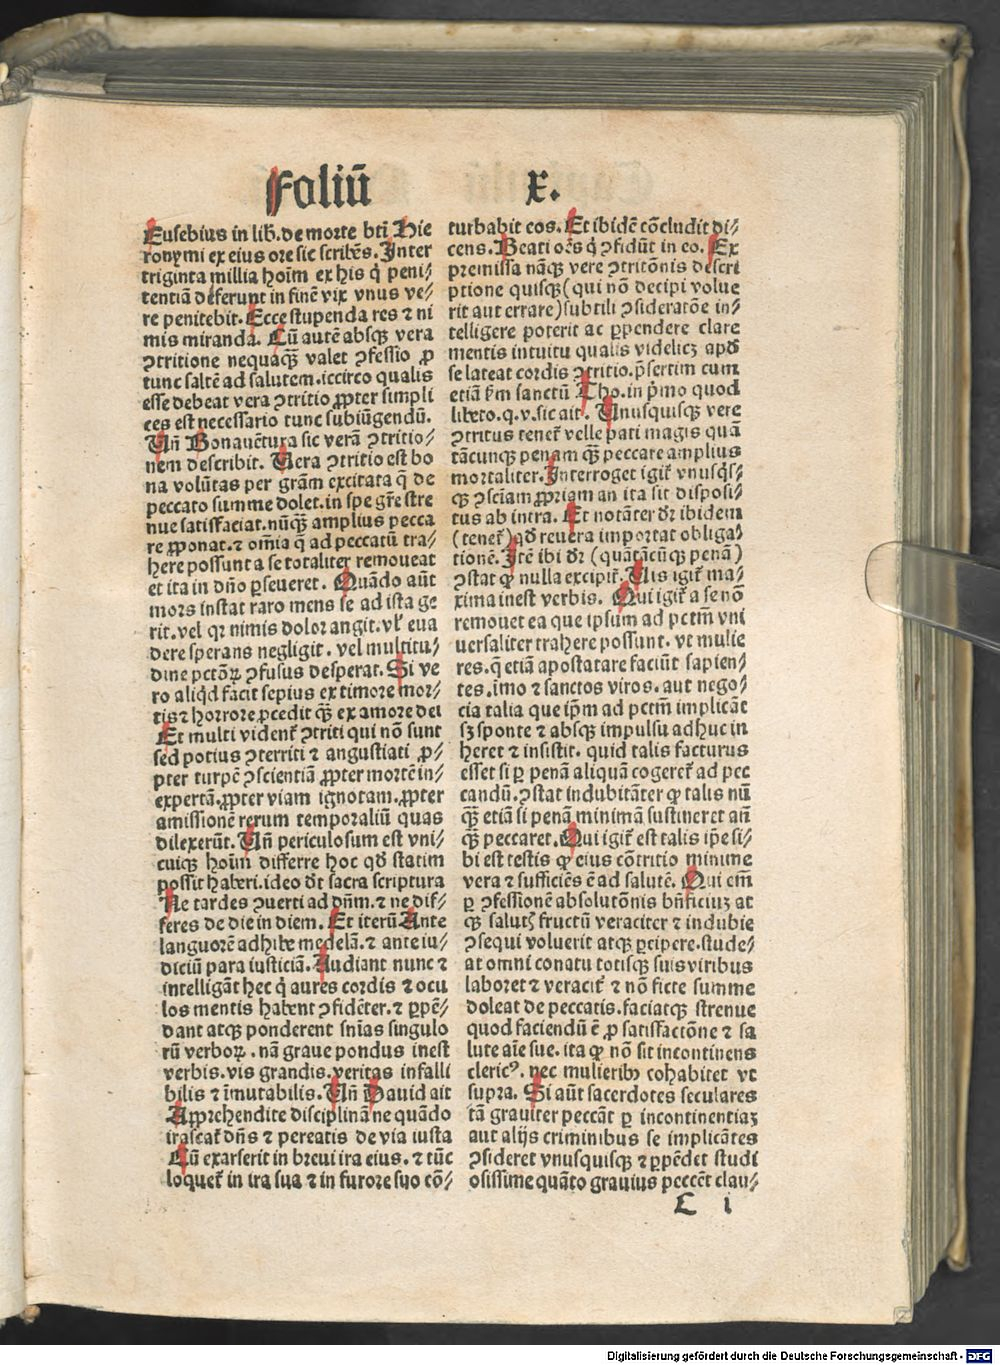 Foliū x.
Eusebius in lib̄. de morte bt̄i Hie
ronymi ex eius ore sic scribēs. Inter
triginta millia hoīm ex his q̇ peni⸗
tentiā differunt in finē vix vnus ve⸗
re penitebit. Ecce stupenda res ⁊ ni
mis miranda. Cū autē absqꝫ vera
ꝯtritione nequaꝙ̄ valet ꝯfessio ꝓ
tunc saltē ad salutem. iccirco qualis
esse debeat vera ꝯtritio ꝓpter simpli
ces est necessario tunc subiūgendū.
Un̄ Bonauētura sic verā ꝯtritio⸗
nem describit. Uera ꝯtritio est bo
na volūtas per grām excitata q̄ de
peccato summe dolet. in spe gr̄e stre
nue satisfaciat. nūꝙ̄ amplius pecca
re ꝓponat. ⁊ om̄ia q̄ ad peccatū tra⸗
here possunt a se totaliter remoueat
et ita in dn̄o ꝑseueret. Quādo aūt
mors instat raro mens se ad ista ge
rit. vel qꝛ nimis dolor angit. vl̓ eua
dere sperans negligit. vel multitu⸗
dine pctōꝝ ꝯfusus desperat. Si ve
ro aliq̇d facit sepius ex timore mor⸗
tis ⁊ horrore ꝓcedit ꝙ̄ ex amore dei
Et multi vident̄ ꝯtriti qui nō sunt
sed potius ꝯterriti ⁊ angustiati ꝓ⸗
pter turpē ꝯscientiā ꝓpter mortē in⸗
expertā. ꝓpter viam ignotam. ꝓpter
amissionē rerum temporaliū quas
dilexerūt. Un̄ periculosum est vni⸗
cuiqꝫ hoīm differre hoc qd̄ statim
possit haberi. ideo dt̄ sacra scriptura
Ne tardes ꝯuerti ad dn̄m. ⁊ ne dif⸗
feres de die in diem. Et iterū Ante
languorē adhibe medelā. ⁊ ante iu⸗
diciū para iusticiā. Audiant nunc ⁊
intelligāt hec q̇ aures cordis ⁊ ocu
los mentis habent ꝯfidēter. ⁊ ꝑpē⸗
dant atqꝫ ponderent sn̄ias singulo
rū verboꝝ. nā graue pondus inest
verbis. vis grandis. veritas infalli
bilis ⁊ īmutabilis. Un̄ Dauid ait
Apprehendite disciplinā ne quādo
irascat̄ dn̄s ⁊ pereatis de via iusta
Cū exarserit in breui ira eius. ⁊ tūc
loquet̄ in ira sua ⁊ in furore suo cō⸗
turbabit eos. Et ibidē cōcludit di⸗
cens. Beati oēs q̇ ꝯfidūt in eo. Ex
premissa nāqꝫ vere ꝯtritōnis descri
ptione quisqꝫ (qui nō decipi volue
rit aut errare) subtili ꝯsideratōe in⸗
telligere poterit ac ꝑpendere clare
mentis intuitu qualis videlicꝫ apd̄
se lateat cordis ꝯtritio. p̄sertim cum
etiā ẜm sanctū Tho. in p̄mo quod
libeto. q. v. sic ait. Unusquisqꝫ vere
ꝯtritus tenet̄ velle pati magis quā
tācunqꝫ penam ꝙ̄ peccare amplius
mortaliter. Interroget igit̄ vnusq̇s⸗
qꝫ ꝯsciam ꝓpriam an ita sit disposi⸗
tus ab intra. Et notāter dr̄ ibidem
(tenet̄) qd̄ reuera importat obliga⸗
tionē. Itē ibi dr̄ (quātācūqꝫ penā)
ꝯstat ꝙ nulla excipit̄. Uis igit̄ ma⸗
xima inest verbis. Qui igit̄ a se nō
remouet ea que ipsum ad pctm̄ vni
uersaliter trahere possunt. vt mulie
res. q̄ etiā apostatare faciūt sapien⸗
tes. imo ⁊ sanctos viros. aut nego⸗
cia talia que ip̄m ad pctm̄ implicāt
sꝫ sponte ⁊ absqꝫ impulsu adhuc in
heret ⁊ insistit. quid talis facturus
esset si ꝑ penā aliquā cogeret̄ ad pec
candū. ꝯstat indubitāter ꝙ talis nū
ꝙ̄ etiā si penā minimā sustineret an̄
ꝙ̄ peccaret. Qui igit̄ est talis ip̄e si⸗
bi est testis ꝙ eius cōtritio minime
vera ⁊ sufficiēs ē ad salutē. Qui em̄
ꝑ ꝯfessionē absolutōnis bn̄ficiuꝫ at
qꝫ salutꝭ fructū veraciter ⁊ indubie
ꝯsequi voluerit atqꝫ ꝑcipere. stude⸗
at omni conatu totisqꝫ suis viribus
laboret ⁊ veracit̄ ⁊ nō ficte summe
doleat de peccatis. faciatqꝫ strenue
quod faciendū ē ꝓ satisfactōne ⁊ sa
lute aīe sue. ita ꝙ nō sit incontinens
clericꝰ. nec mulieribꝫ cohabitet vt
supra. Si aūt sacerdotes seculares
tā grauiter peccāt ꝑ incontinentiaꝫ
aut alijs criminibus se implicātes
ꝯsideret vnusquisqꝫ ⁊ ꝑpēdet studi
osissime quāto grauius peccēt clau⸗
C i
Digitalisierung gefördert durch die Deutsche Forschungsgemeinschaft - DFG